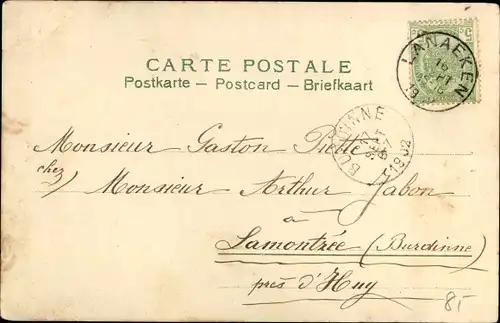 CARTE POSTALE
Postkarte – Postcard – Briefkaart
LANAEKEN
BURDINNE
1902
Monsieur Gaston Piette
chez) Monsieur Arthur Jabon
à
Lamontzée (Burdinne)
près d'Huy
85
5